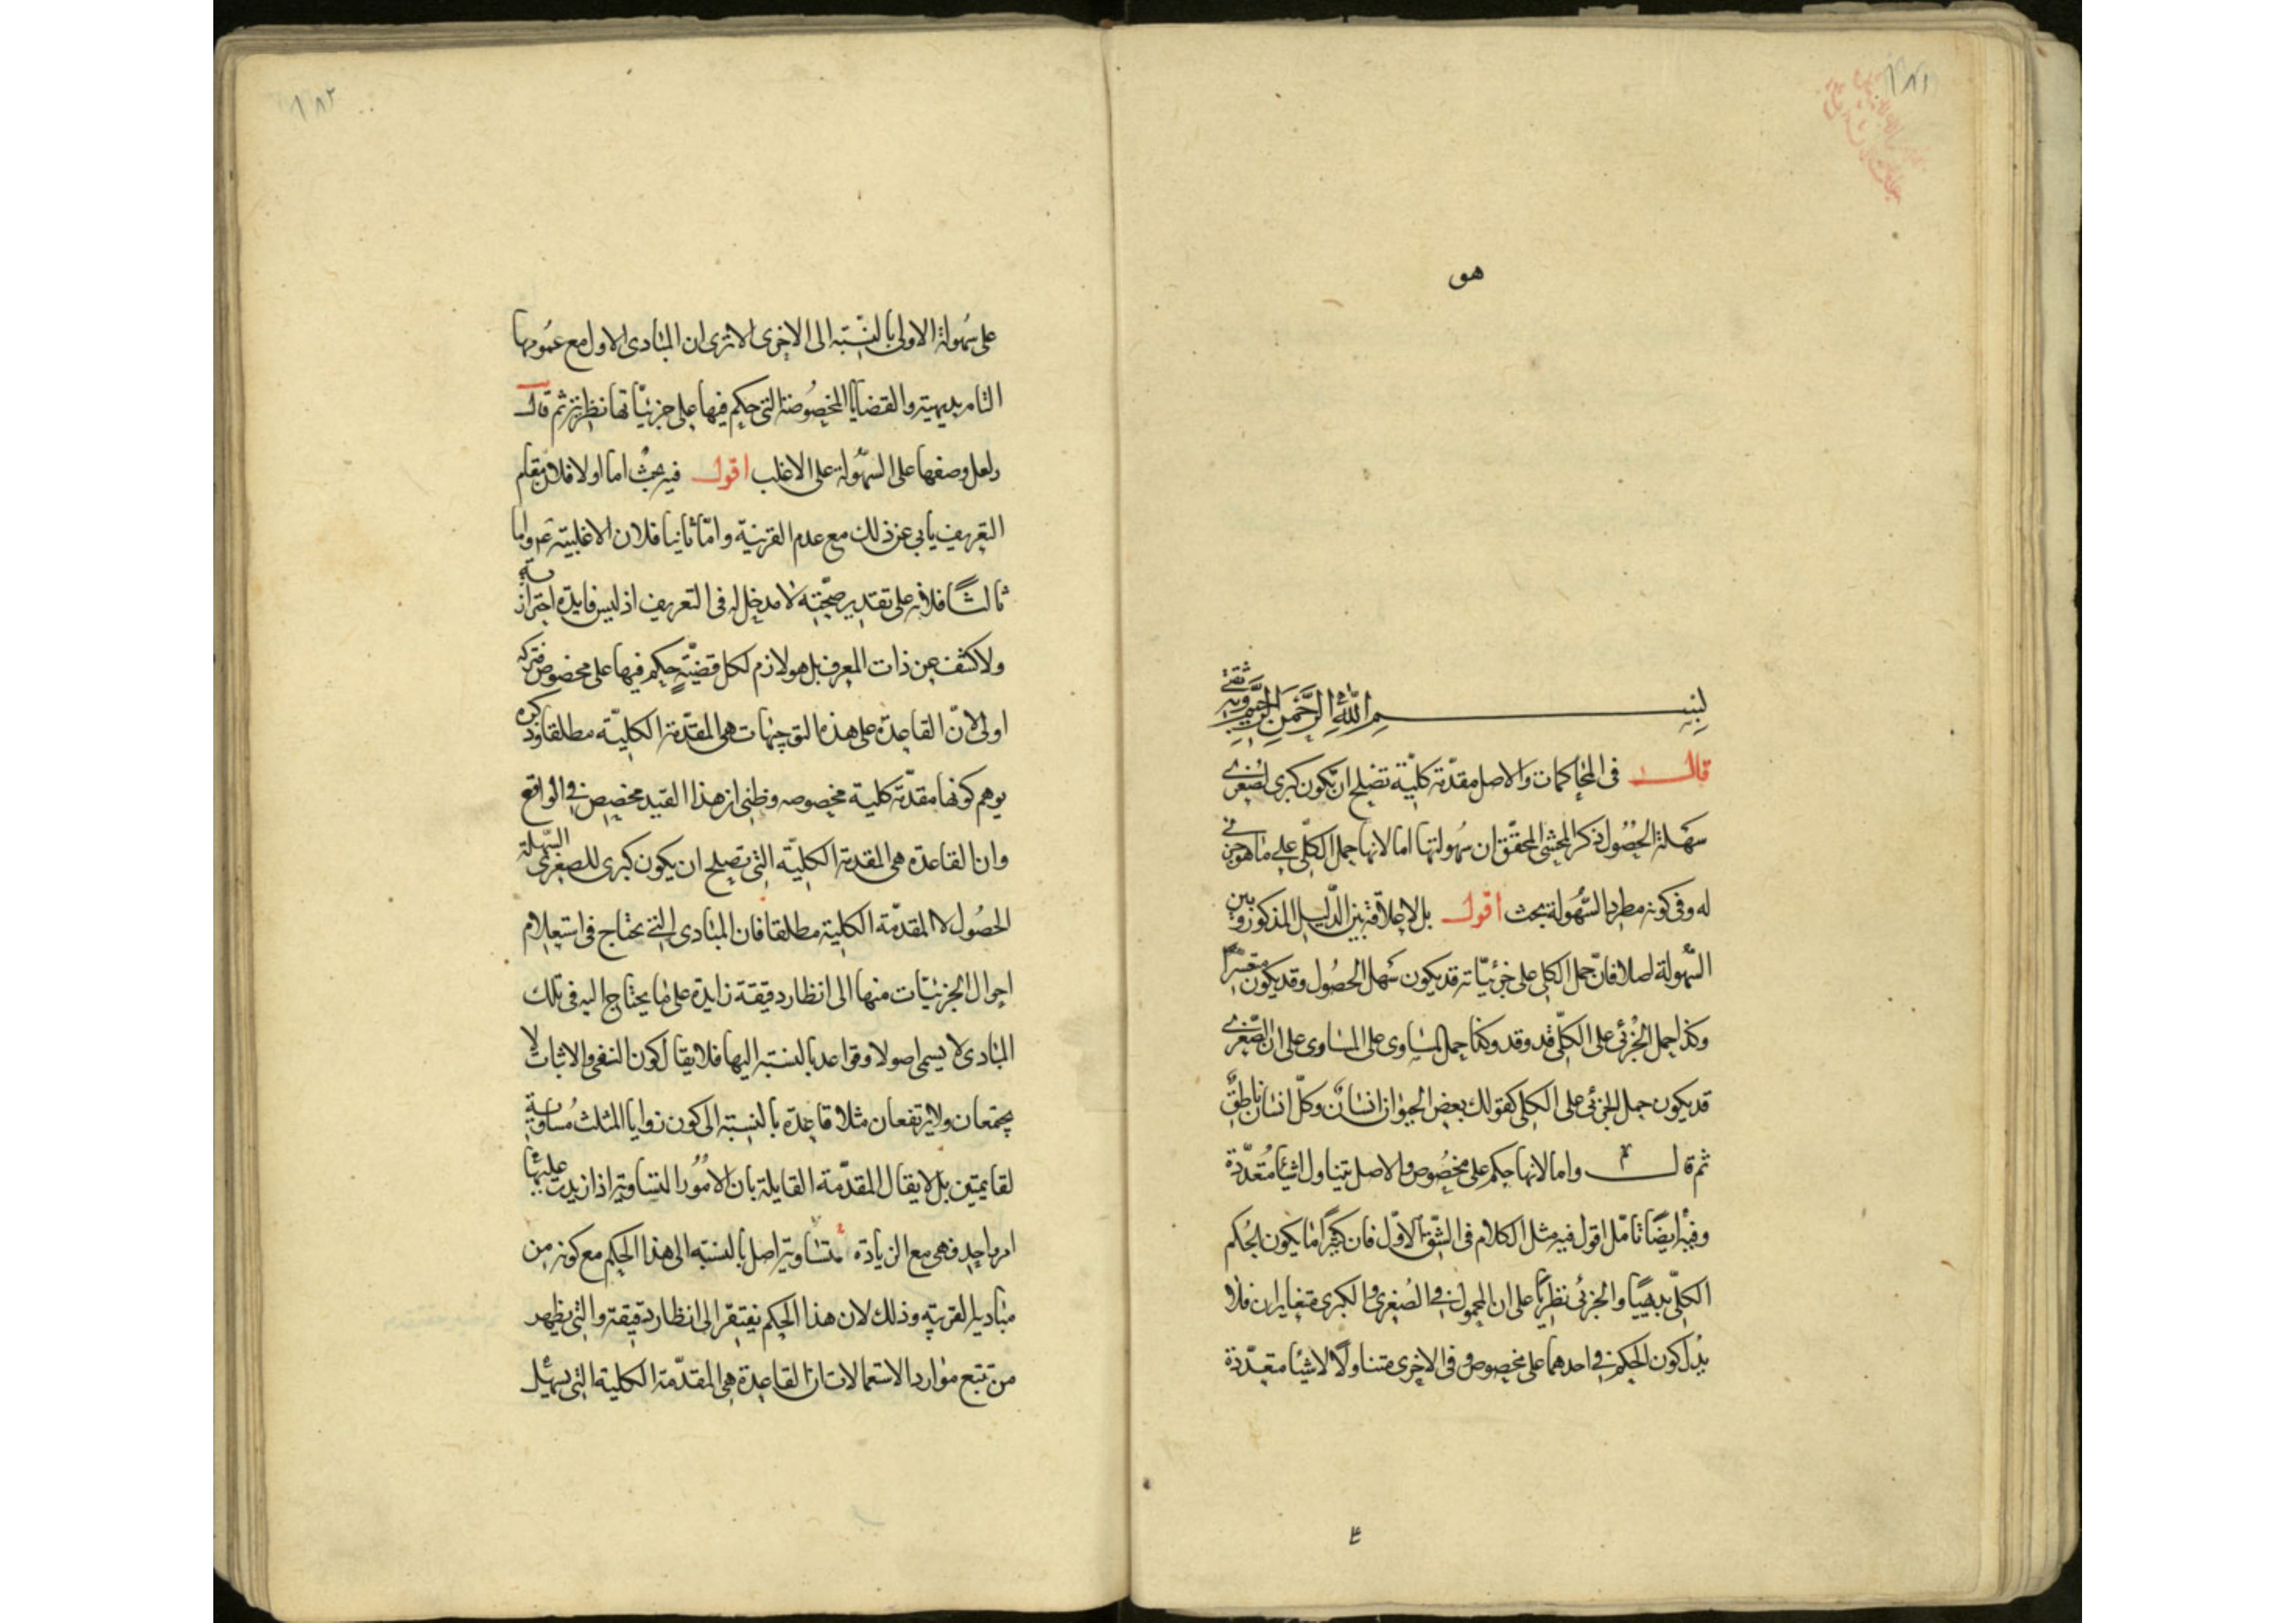 ١٨١
هو
بسم الله الرحمن الرحيم وبه ثقتي
قال في المحاكمات والاصل مقدمة كلية تصلح ان تكون كبرى لصغرى
سهلة الحصول ذكر المحشي المحقق ان سهولتها اما لانها حمل الكلي على ما هو جزئي
له وفي كونه مطردا لسهولة بحث اقول بل لا علاقة بين الدليل المذكور وبين
السهولة اصلا فان حمل الكلي على جزئياته قد يكون سهل الحصول وقد يكون متعسرا
وكذا حمل الجزئي على الكلي قد وقد وكذا حمل المساوي على المساوي على ان الصغرى
قد يكون حمل الجزئي على الكلي كقولك بعض الحيوان انسان وكل انسان ناطق
ثم قال واما لانها حكم على مخصوص والاصل يتناول اشياء متعددة
وفيه ايضا تامل اقول فيه مثل الكلام في الشق الاول فان كثيرا ما يكون الحكم
الكلي بديهيا والجزئي نظريا على ان المحمول في الصغرى والكبرى متغايران فلا
يدل كون الحكم في احدهما على مخصوص وفي الاخرى متناولا لاشياء متعددة
١٨٢
على سهولة الاولى بالنسبة الى الاخرى الا ترى ان المبادى الاول مع عمومها
التام بديهية والقضايا المخصوصة التي حكم فيها على جزئياتها نظرية ثم قال
ولعل وصفها على السهولة على الاغلب اقول فيه بحث اما اولا فلان مقام
التعريف يابى عن ذلك مع عدم القرينة واما ثانيا فلان الاغلبية مم واما
ثالثا فلانه على تقدير صحته لا مدخل له في التعريف اذ ليس فايدة احترازية
ولا كشف عن ذات المعرف بل هو لازم لكل قضية حكم فيها على مخصوص فتركه
اولى لان القاعدة على هذه التوجيهات هي المقدمة الكلية مطلقا وذكره
يوهم كونها مقدمة كلية مخصوصه وظني ان هذا القيد مخصص في الواقع
وان القاعدة هي المقدمة الكلية التي تصلح ان يكون كبرى للصغرى السهلة
الحصول لا المقدمة الكلية مطلقا فان المبادى التي تحتاج في استعلام
احوال الجزئيات منها الى انظار دقيقة زايدة على ما يحتاج اليه في تلك
المبادى لا يسمى اصولا وقواعد بالنسبة اليها فلا يقال كون النفي والاثبات لا
يجتمعان ولا يرتفعان مثلا قاعدة بالنسبة الى كون زوايا المثلث مساوية
لقايمتين بل لا يقال المقدمة القايلة بان الامور المتساوية اذا زيدت عليها
امر واحد فهي مع الزيادة متساوية اصل بالنسبة الى هذا الحكم مع كونه من
مباديه القريبة وذلك لان هذا الحكم يفتقر الى انظار دقيقة والتي يظهر
من تتبع موارد الاستعمالات ان القاعدة هي المقدمة الكلية التي يسهل